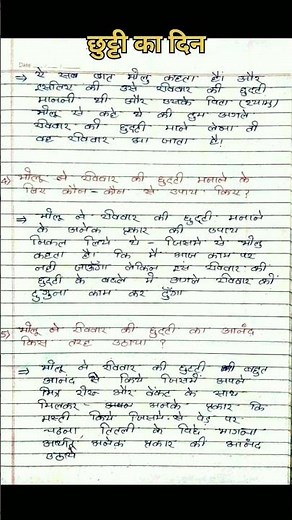 छुट्टी का दिन
⇒ ये सब बात मोलु कहता है। और
इसलिए की उसे रविवार की छुट्टी
मनानी थी और उसके पिता (श्यामु)
मोलु से कहे थे की तुम अगले
रविवार की छुट्टी मना लेना तो
वह रविवार आ जाता है।
4) मोलु ने रविवार की छुट्टी मनाने के
लिए कौन-कौन से उपाय किए?
⇒ मोलु ने रविवार की छुट्टी मनाने
के अनेक प्रकार की उपाय
निकाल लिये थे - जिसमे से मोलु
कहता है। कि मैं आज काम पर
नहीं जाऊँगा लेकिन इस रविवार की
छुट्टी के बदले मैं अगले रविवार को
दुगुना काम कर दुँगा
5) मोलु ने रविवार की छुट्टी का आनंद
किस तरह उठाया?
⇒ मोलु ने रविवार की छुट्टी की बहुत
आनंद से किये जिसमें अपने
मित्र और वेंकट के साथ
मिलकर अनके प्रकार कि
मस्ती किये जिसमे से पेड़ पर
चढना, तितली के पिछे भागना
अर्थात्, अनेक प्रकार की आनंद
उठाये